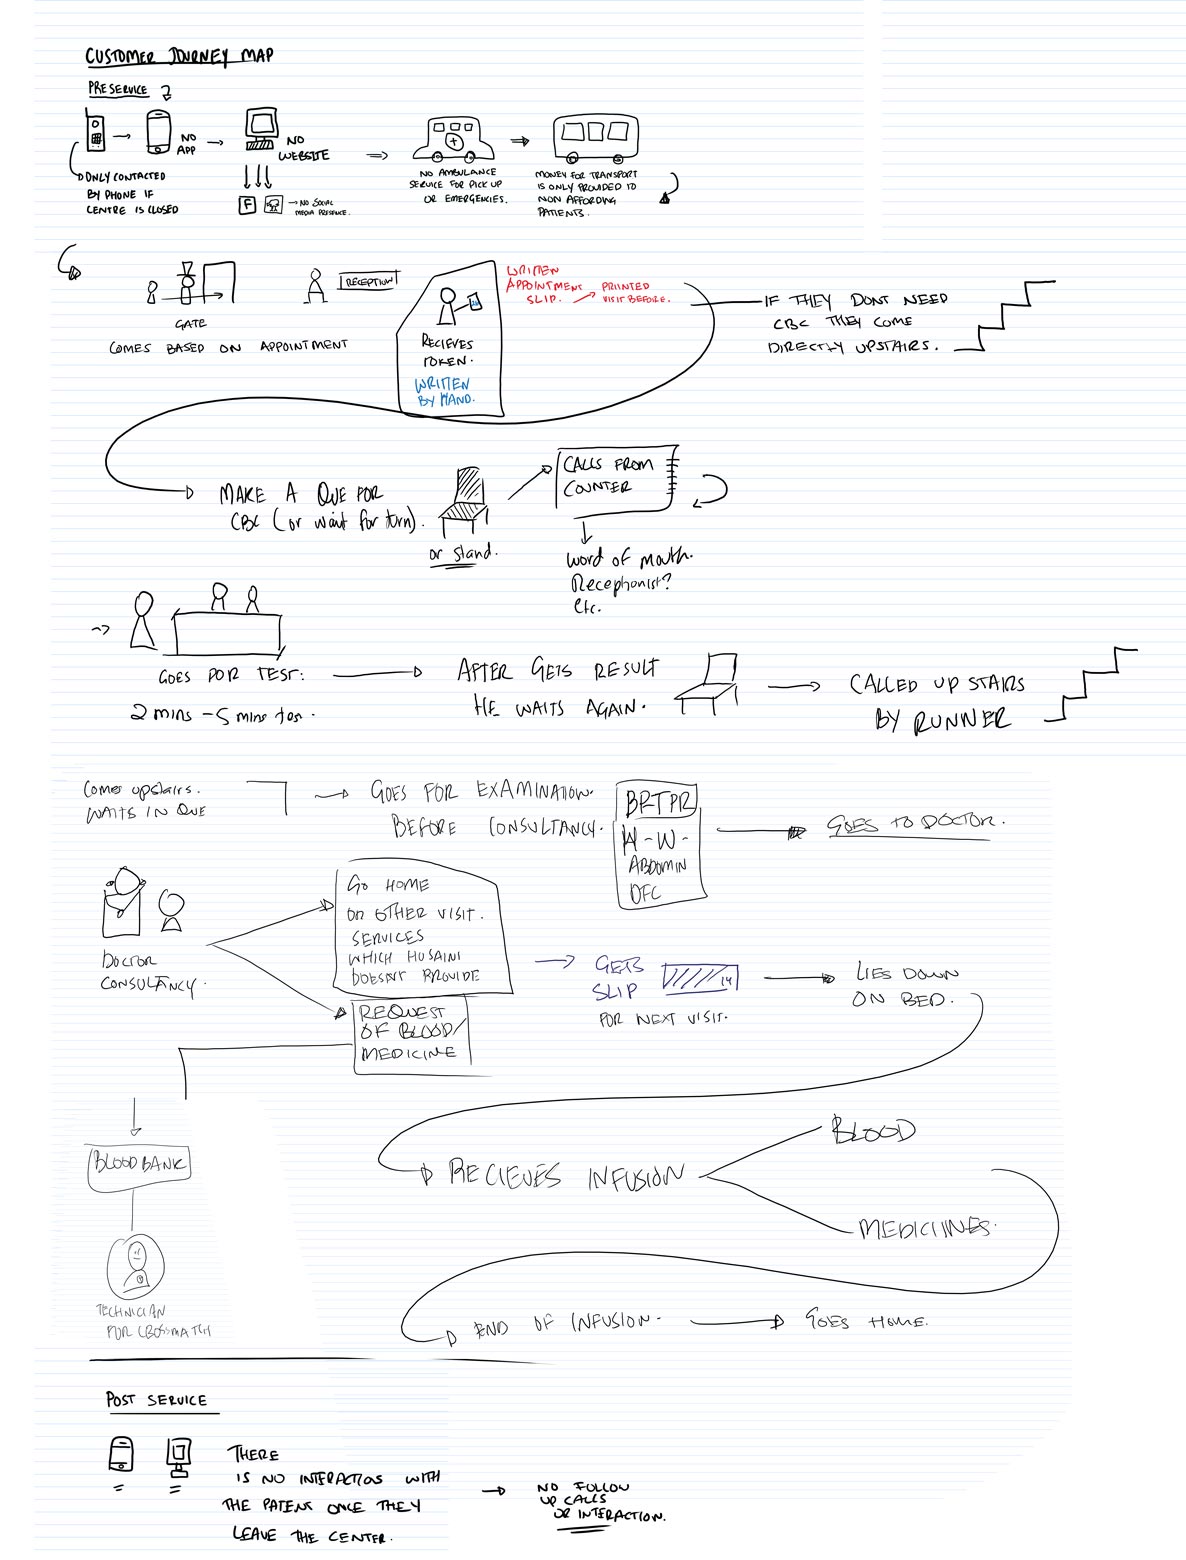 CUSTOMER JOURNEY MAP
PRESERVICE
NO
APP
NO
WEBSITE
ONLY CONTACTED
BY PHONE IF
CENTRE IS CLOSED
F
NO SOCIAL
MEDIA PRESENCE.
NO AMBULANCE
SERVICE FOR PICK UP
OR EMERGENCIES.
MONEY FOR TRANSPORT
IS ONLY PROVIDED TO
NON AFFORDING
PATIENTS.
GATE
COMES BASED ON APPOINTMENT
RECEPTION
RECIEVES
TOKEN.
WRITTEN
BY HAND.
WRITTEN
APPOINTMENT
SLIP.
PRINTED
VISIT BEFORE.
IF THEY DONT NEED
CBC THEY COME
DIRECTLY UPSTAIRS.
MAKE A QUE FOR
CBC (or wait for turn).
or stand.
CALLS FROM
COUNTER
word of mouth.
Receptionist?
etc.
GOES FOR TEST:
2 mins - 5 mins
AFTER GETS RESULT
HE WAITS AGAIN.
CALLED UP STAIRS
BY RUNNER
Comes upstairs.
WAITS IN QUE
GOES FOR EXAMINATION.
BEFORE CONSULTANCY.
BRTPR
H-W-
ABDOMIN
OFC
GOES TO DOCTOR.
DOCTOR
CONSULTANCY.
GO HOME
on OTHER VISIT.
SERVICES
WHICH HUSAINI
DOESNT PROVIDE
REQUEST
OF BLOOD/
MEDICINE
GETS
SLIP
14
FOR NEXT VISIT.
LIES DOWN
ON BED.
BLOOD BANK
TECHNICIAN
FOR CROSSMATCH
RECIEVES INFUSION
BLOOD
MEDICINES.
END OF INFUSION.
GOES HOME.
POST SERVICE
THERE
IS NO INTERACTION WITH
THE PATENT ONCE THEY
LEAVE THE CENTER.
NO FOLLOW
UP CALLS
OR INTERACTION.